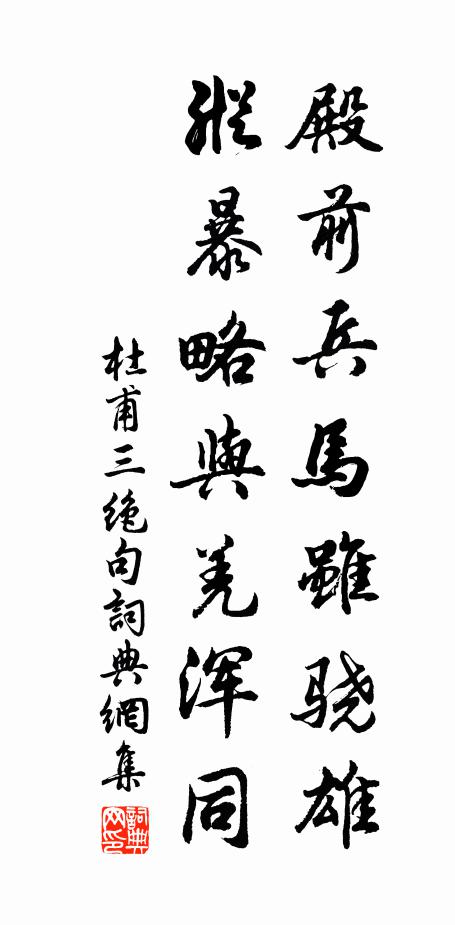 殿前兵馬雖骁雄
縱暴略與羌浑同
杜甫三绝句詞典網集
詞典网印